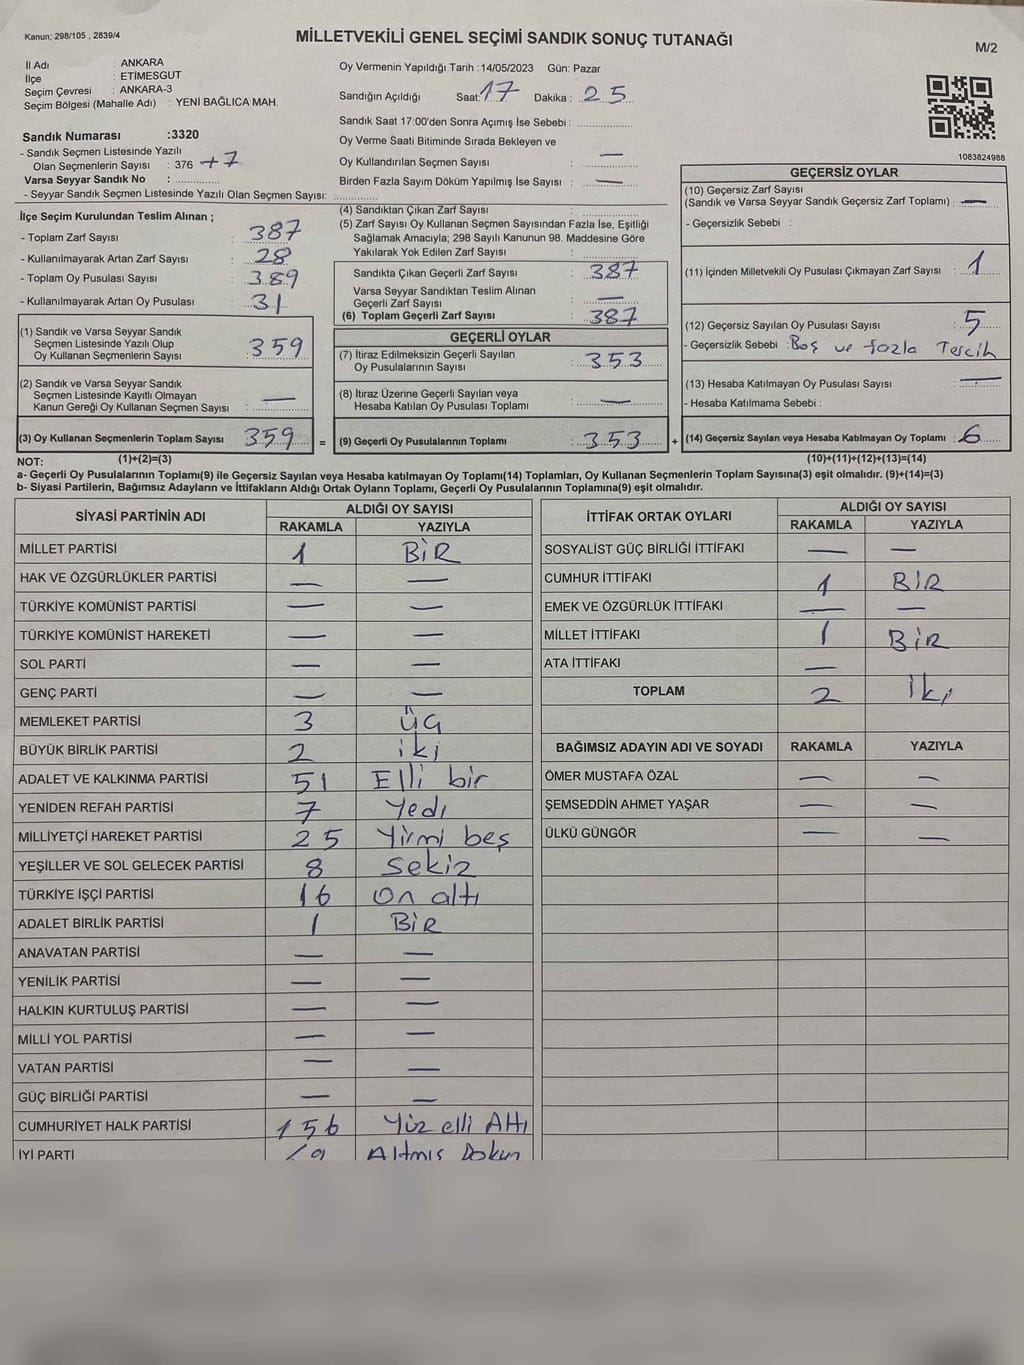 Kanun; 298/105 , 2839/4
MİLLETVEKİLİ GENEL SEÇİMİ SANDIK SONUÇ TUTANAĞI
M/2
İl Adı : ANKARA
İlçe : ETİMESGUT
Seçim Çevresi : ANKARA-3
Seçim Bölgesi (Mahalle Adı) : YENİ BAĞLICA MAH.
Oy Vermenin Yapıldığı Tarih :14/05/2023 Gün: Pazar
Sandığın Açıldığı Saat: 17 Dakika : 25
Sandık Saat 17:00'den Sonra Açımış İse Sebebi :
Oy Verme Saati Bitiminde Sırada Bekleyen ve
Oy Kullandırılan Seçmen Sayısı : —
Birden Fazla Sayım Döküm Yapılmış İse Sayısı : —
1083824988
Sandık Numarası :3320
- Sandık Seçmen Listesinde Yazılı
Olan Seçmenlerin Sayısı : 376 +7
Varsa Seyyar Sandık No :
- Seyyar Sandık Seçmen Listesinde Yazılı Olan Seçmen Sayısı:
İlçe Seçim Kurulundan Teslim Alınan ;
- Toplam Zarf Sayısı : 387
- Kullanılmayarak Artan Zarf Sayısı : 28
- Toplam Oy Pusulası Sayısı : 389
- Kullanılmayarak Artan Oy Pusulası : 31
(1) Sandık ve Varsa Seyyar Sandık
Seçmen Listesinde Yazılı Olup
Oy Kullanan Seçmenlerin Sayısı : 359
(2) Sandık ve Varsa Seyyar Sandık
Seçmen Listesinde Kayıtlı Olmayan
Kanun Gereği Oy Kullanan Seçmen Sayısı : —
(3) Oy Kullanan Seçmenlerin Toplam Sayısı 359 =
(1)+(2)=(3)
(4) Sandıktan Çıkan Zarf Sayısı :
(5) Zarf Sayısı Oy Kullanan Seçmen Sayısından Fazla İse, Eşitliği
Sağlamak Amacıyla; 298 Sayılı Kanunun 98. Maddesine Göre
Yakılarak Yok Edilen Zarf Sayısı :
Sandıkta Çıkan Geçerli Zarf Sayısı : 387
Varsa Seyyar Sandıktan Teslim Alınan
Geçerli Zarf Sayısı : —
(6) Toplam Geçerli Zarf Sayısı : 387
GEÇERLİ OYLAR
(7) İtiraz Edilmeksizin Geçerli Sayılan
Oy Pusulalarının Sayısı : 353
(8) İtiraz Üzerine Geçerli Sayılan veya
Hesaba Katılan Oy Pusulası Toplamı : —
(9) Geçerli Oy Pusulalarının Toplamı : 353 +
GEÇERSİZ OYLAR
(10) Geçersiz Zarf Sayısı
(Sandık ve Varsa Seyyar Sandık Geçersiz Zarf Toplamı) : —
- Geçersizlik Sebebi :
(11) İçinden Milletvekili Oy Pusulası Çıkmayan Zarf Sayısı : 1
(12) Geçersiz Sayılan Oy Pusulası Sayısı : 5
- Geçersizlik Sebebi : Boş ve fazla Tercih
(13) Hesaba Katılmayan Oy Pusulası Sayısı : —
- Hesaba Katılmama Sebebi :
(14) Geçersiz Sayılan veya Hesaba Katılmayan Oy Toplamı : 6
(10)+(11)+(12)+(13)=(14)
NOT:
a- Geçerli Oy Pusulalarının Toplamı(9) ile Geçersiz Sayılan veya Hesaba katılmayan Oy Toplamı(14) Toplamları, Oy Kullanan Seçmenlerin Toplam Sayısına(3) eşit olmalıdır. (9)+(14)=(3)
b- Siyasi Partilerin, Bağımsız Adayların ve İttifakların Aldığı Ortak Oyların Toplamı, Geçerli Oy Pusulalarının Toplamına(9) eşit olmalıdır.
SİYASİ PARTİNİN ADI ALDIĞI OY SAYISI
RAKAMLA YAZIYLA
MİLLET PARTİSİ 1 BİR
HAK VE ÖZGÜRLÜKLER PARTİSİ — —
TÜRKİYE KOMÜNİST PARTİSİ — —
TÜRKİYE KOMÜNİST HAREKETİ — —
SOL PARTİ — —
GENÇ PARTİ — —
MEMLEKET PARTİSİ 3 üç
BÜYÜK BİRLİK PARTİSİ 2 iki
ADALET VE KALKINMA PARTİSİ 51 Elli bir
YENİDEN REFAH PARTİSİ 7 Yedi
MİLLİYETÇİ HAREKET PARTİSİ 25 Yirmi beş
YEŞİLLER VE SOL GELECEK PARTİSİ 8 Sekiz
TÜRKİYE İŞÇİ PARTİSİ 16 On altı
ADALET BİRLİK PARTİSİ 1 BİR
ANAVATAN PARTİSİ — —
YENİLİK PARTİSİ — —
HALKIN KURTULUŞ PARTİSİ — —
MİLLİ YOL PARTİSİ — —
VATAN PARTİSİ — —
GÜÇ BİRLİĞİ PARTİSİ — —
CUMHURİYET HALK PARTİSİ 156 Yüz elli Altı
İYİ PARTİ Altmış Dokuz
İTTİFAK ORTAK OYLARI ALDIĞI OY SAYISI
RAKAMLA YAZIYLA
SOSYALİST GÜÇ BİRLİĞİ İTTİFAKI — —
CUMHUR İTTİFAKI 1 BİR
EMEK VE ÖZGÜRLÜK İTTİFAKI — —
MİLLET İTTİFAKI 1 BİR
ATA İTTİFAKI —
TOPLAM 2 iki
BAĞIMSIZ ADAYIN ADI VE SOYADI RAKAMLA YAZIYLA
ÖMER MUSTAFA ÖZAL — —
ŞEMSEDDİN AHMET YAŞAR — —
ÜLKÜ GÜNGÖR — —